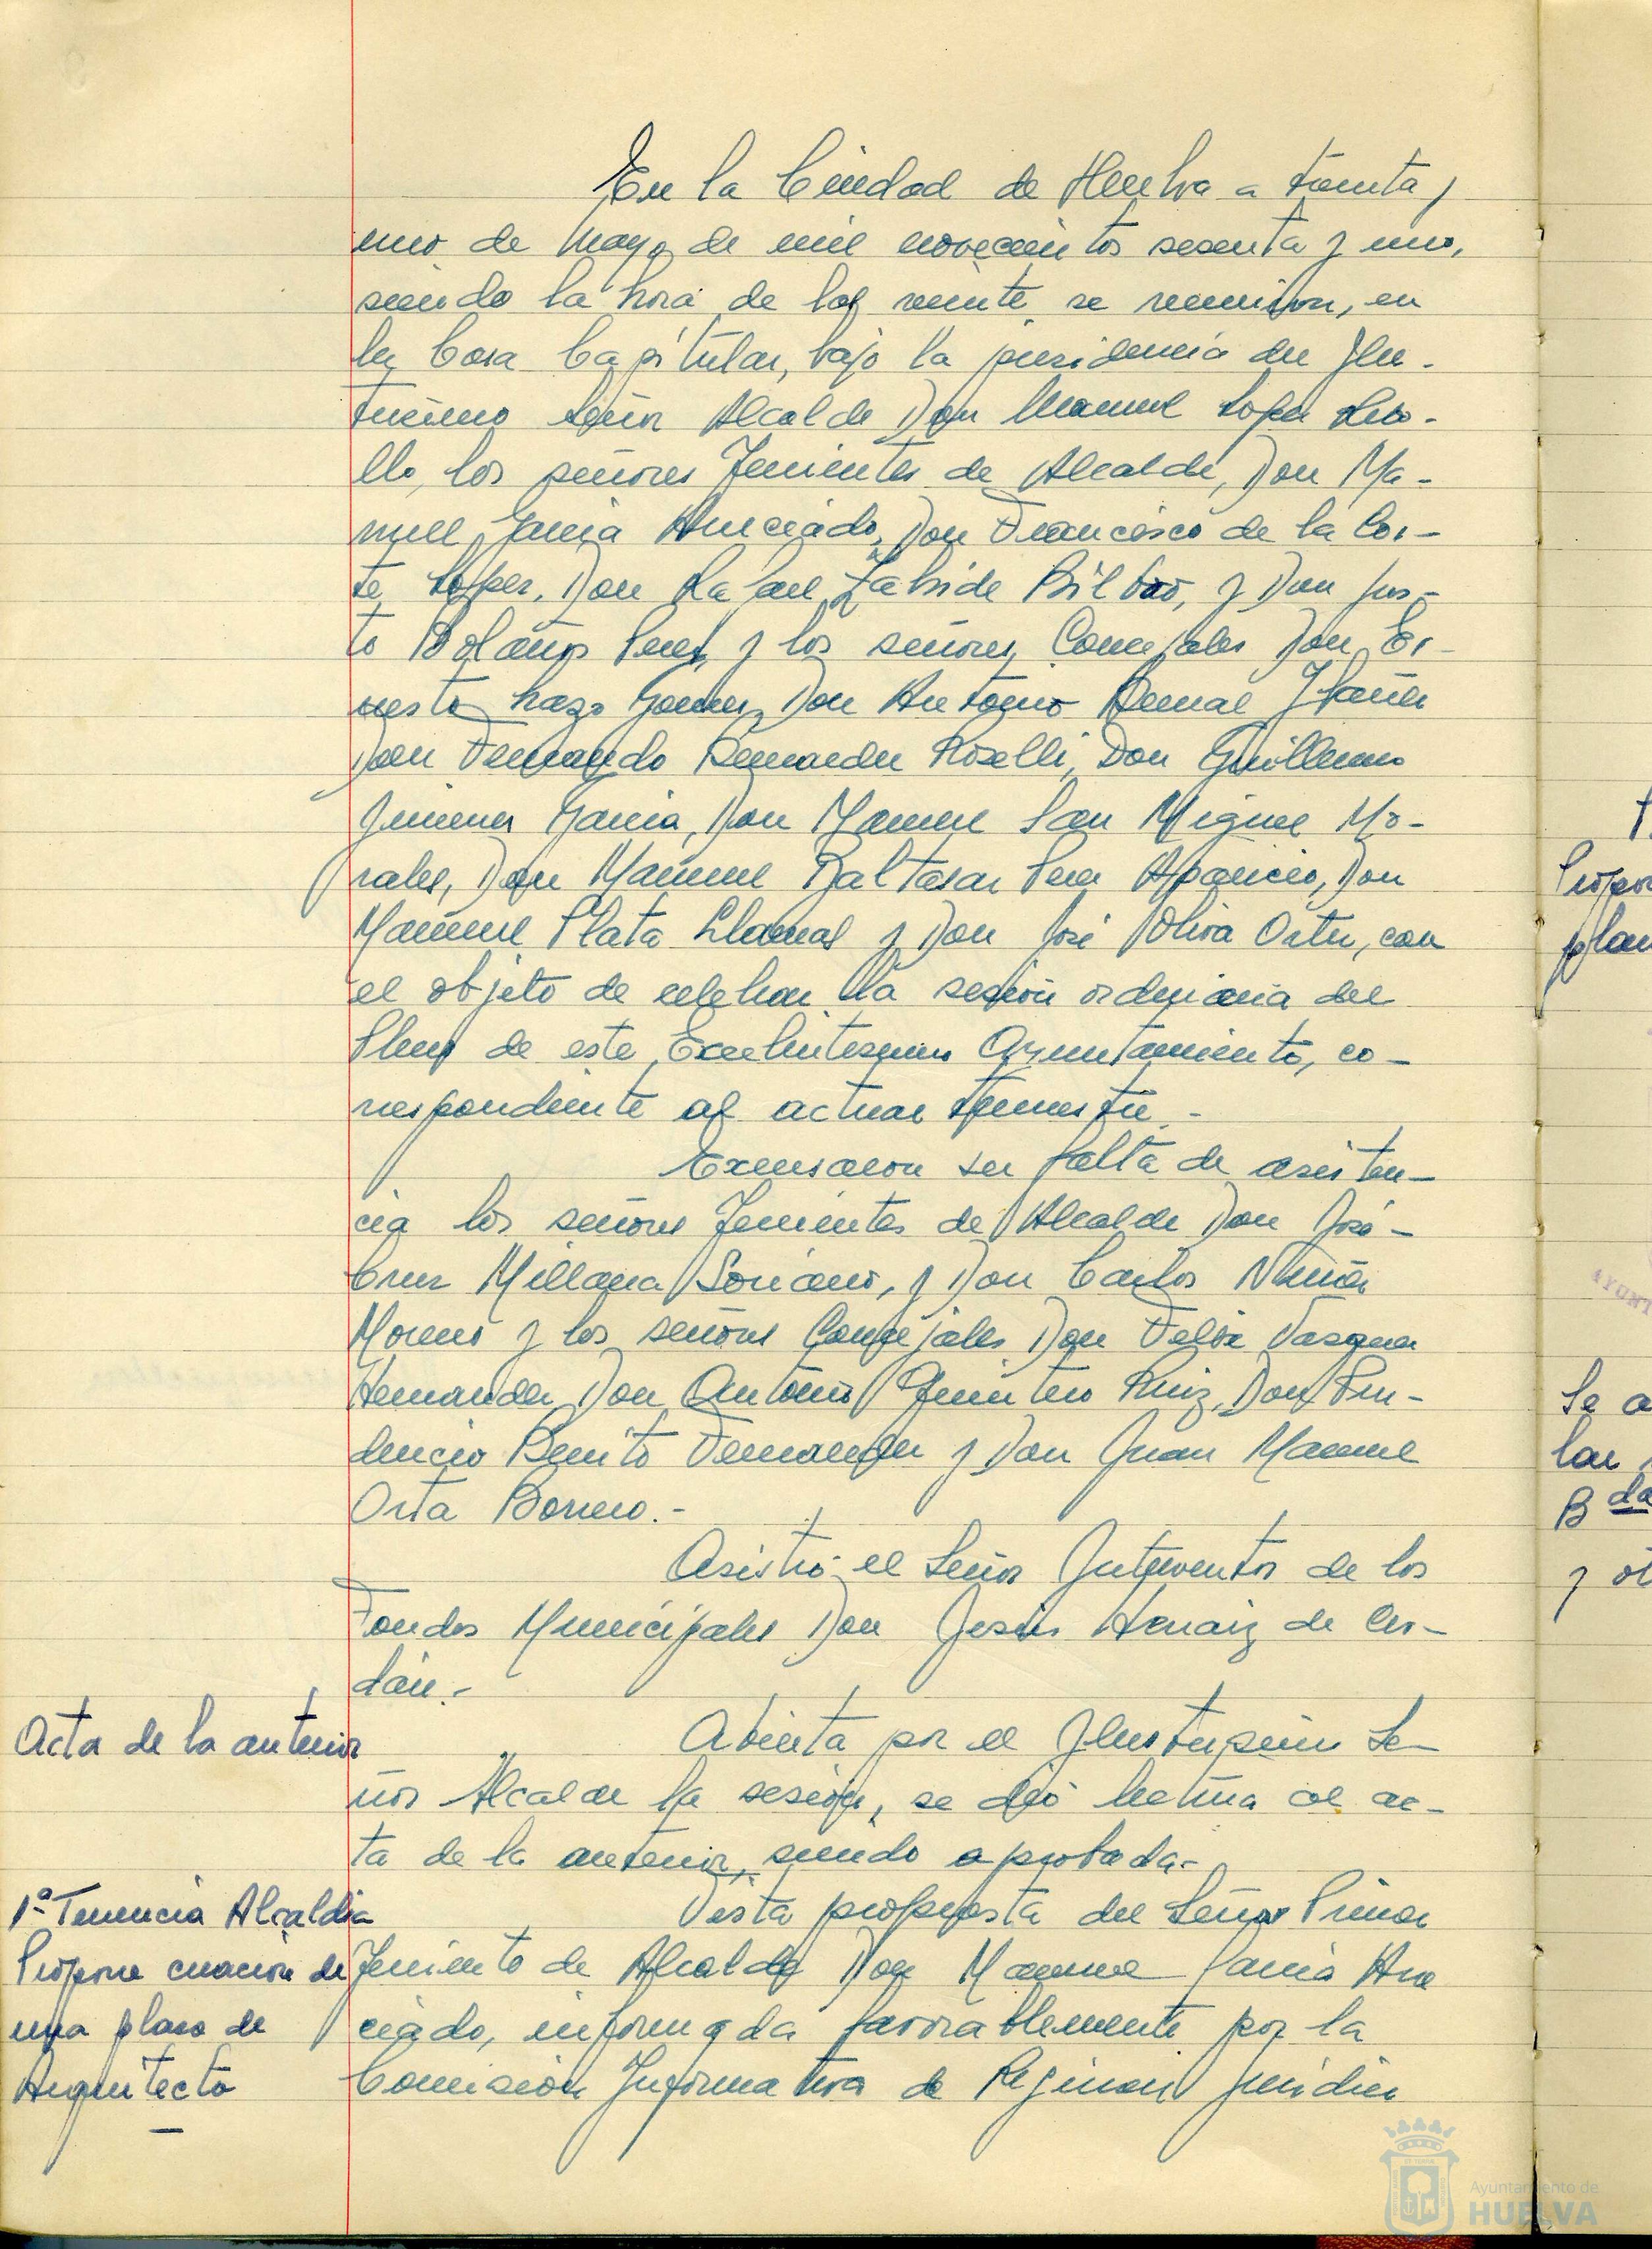 En la Ciudad de Huelva a treinta y
uno de Mayo de mil novecientos sesenta y uno,
siendo la hora de las veinte se reunieron, en
la Casa Capitular, bajo la presidencia del Ilus-
trisimo Señor Alcalde Don Manuel Lopez Rebo-
llo, los señores Tenientes de Alcalde, Don Ma-
nuel Garcia Anreciado, Don Francisco de la Cor-
te Lopez, Don Rafael Zalvide Bilbao, y Don Jus-
to Bolaños Perez y los señores Concejales Don Er-
nesto Lazo Gomez, Don Antonio Bernal Ibañez
Don Fernando Bermudez Roselli, Don Guillermo
Jimenez Garcia, Don Manuel San Miguel Mo-
rales, Don Manuel Baltasar Perez Aparicio, Don
Manuel Plata Llamas y Don José Oliva Ortiz, con
el objeto de celebrar la sesión ordinaria del
Pleno de este Excelentisimo Ayuntamiento, co-
rrespondiente al actual trimestre.-
Excusaron su falta de asisten-
cia los señores Tenientes de Alcalde Don José
Cruz Millana Soriano, y Don Carlos Nuñez
Moreno y los señores Concejales Don Felix Vazquez
Hernandez Don Antonio Quintero Ruiz, Don Pru-
dencio Benito Fernandez y Don Juan Manuel
Orta Borrero.-
Asistió el Señor Interventor de los
Fondos Municipales Don Jesús Arnaiz de Cer-
dán.-
Acta de la anterior
Abierta por el Ilustrisimo Se-
ñor Alcalde la sesión, se dió lectura al ac-
ta de la anterior, siendo aprobada.-
1ª Tenencia Alcaldia
Propone creación de
una plaza de
Arquitecto
Vista propuesta del Señor Primer
Teniente de Alcalde Don Manuel Garcia Anre
ciado, informada favorablemente por la
Comision Informativa de Régimen Juridico
Se a
y ot
Ayuntamiento de
HUELVA